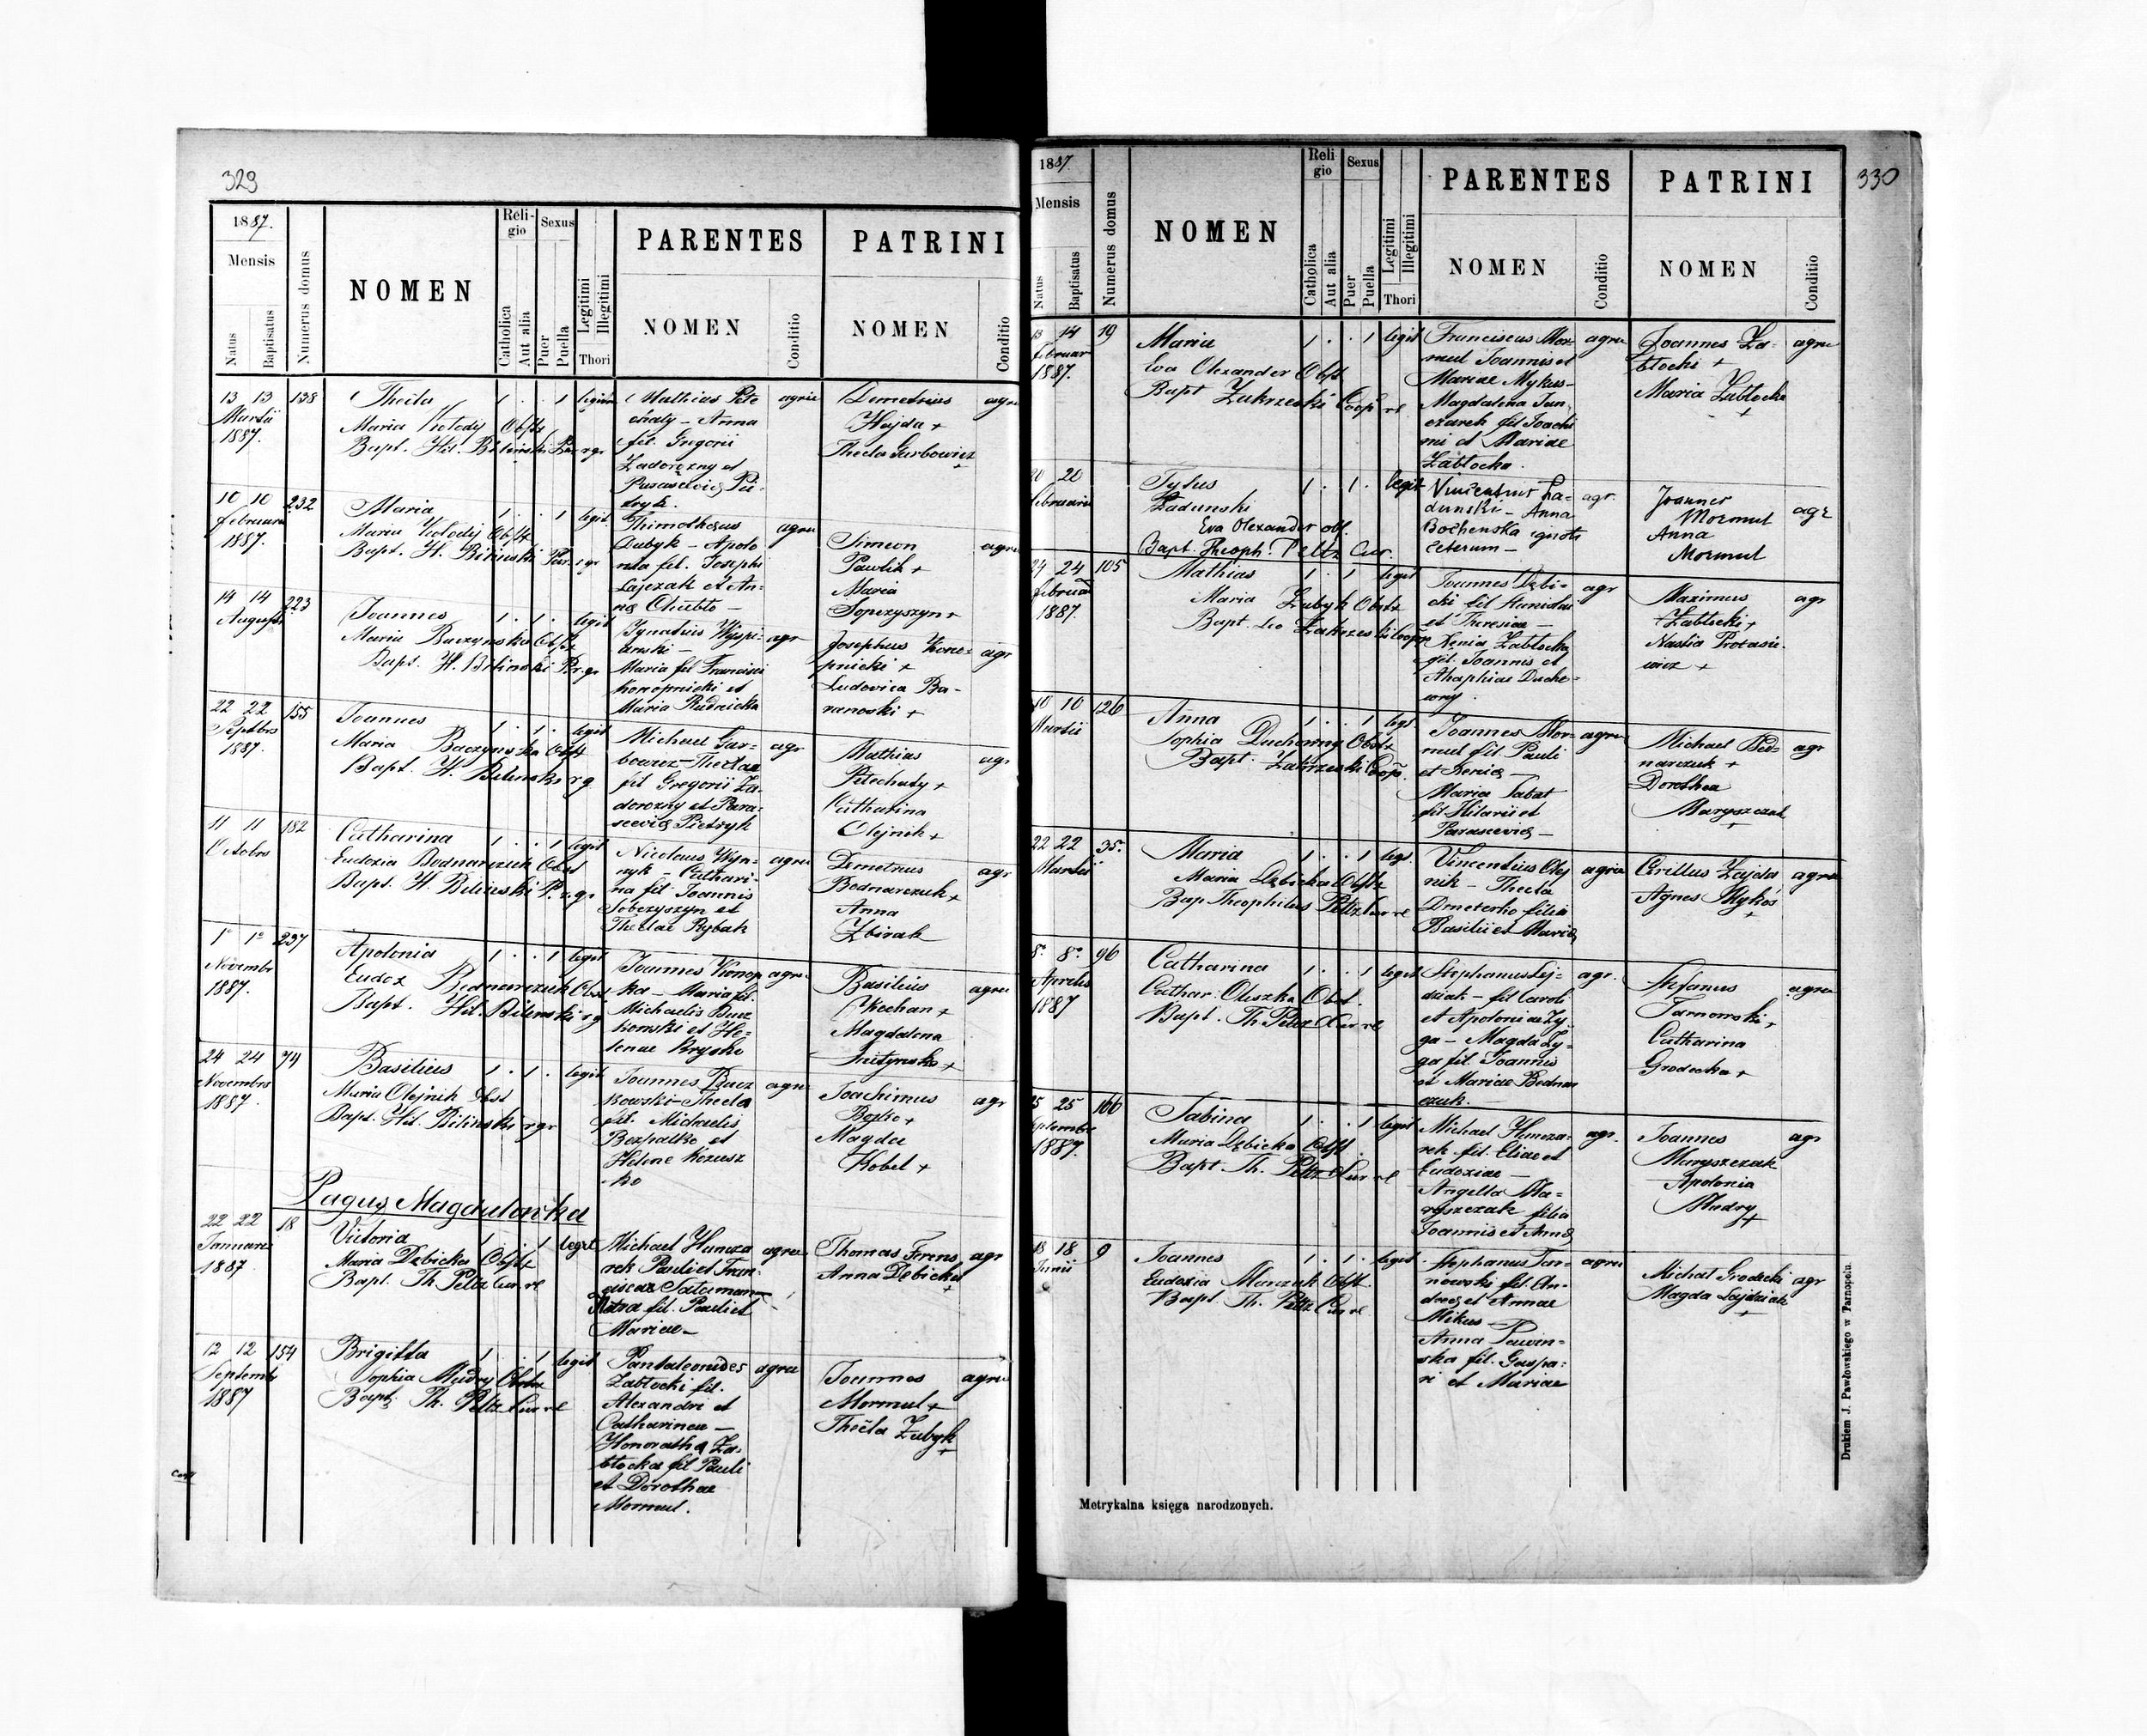 329
1887.
Mensis
Natus
Baptisatus
Numerus domus
NOMEN
Reli-
gio
Catholica
Aut alia
Sexus
Puer
Puella
Legitimi
Illegitimi
Thori
PARENTES
NOMEN
Conditio
PATRINI
NOMEN
Conditio
13 13 138
Martii
1887.
Thecla
Maria Kolody Obstx
Bapt. Hil. Bilinski Par rgr
1 . . 1 legit
Mathias Pete
chaty - Anna
fil. Grigorii
Zadorozny et
Parascevia Pie
tryk.
agric
Demetrius
Hajda +
Thecla Gurbowicz
+
agr
10 10 232
Februarii
1887.
Maria
Maria Kolody Obstx
Bapt. H. Bilinski Par. rgr
1 . . 1 legit
Thimotheus
Dubyk - Apolo
nia fil. Josephi
Lajczak et An-
na Chiebto -
agric
Simeon
Pawlik +
Maria
Sopczyszyn +
agric
14 14 223
Augusti
Joannes
Maria Baczynska Obstx
Bapt. H. Bilinski Pr. gr
1 . 1 . legit
Ignatius Wyspi-
anski -
Maria fil Francisci
Konopnicki et
Maria Rudnicka
agr
Josephus Kono-
pnicki +
Ludovica Ba-
ranoski +
agr
22 22 155
Septbrs
1887.
Joannes
Maria Baczynska Obstx
Bapt. H. Bilinski rg
1 . 1 . legit
Michael Gur-
bowicz - Theclae
fil Gregorii Za-
dorozny et Para-
scevia Pietryk
agr
Mathias
Petechaty +
Catharina
Olejnik +
agr
11 11 182
Octobrs
Catharina
Eudoxia Bodnarczuk Obst
Bapt. H. Bilinski P. r. gr
1 . . 1 legit
Nicolaus Wyn-
nyk - Cathari-
na fil. Joannis
Sobczyszyn et
Theclae Rybak
agric
Demetrius
Bodnarczuk +
Anna
Zbirak
agr
1° 1° 237
Novembr
1887.
Apolonia
Eudox Bednarczuk Obst
Bapt. Hil. Bilinski rg
1 . . 1 legit
Joannes Konop
ka - Maria fil.
Michaelis Bucz
kowski et He-
lenae Brysko
agric
Basilius
Kochan +
Magdalena
+
agric
24 24 74
Novembrs
1887.
Basilius
Maria Olejnik Obst
Bapt. Hil. Bilinski rgr
1 . 1 . legit
Joannes Bucz
kowski - Thecla
fil. Michaelis
Bezpalko et
Helene Kozusz
-ko
agric
Joachimus
Bojko +
Magda
Kobel +
agr
Pagus Magdalowka
22 22 18
Januarii
1887
Victoria
Maria Dębicka Obstx
Bapt. Th. Peltz Cur. rl
1 . . 1 legit
Michael Huncza
rek Pauli et Fran-
ciscae Sataman
Petra fil. Pauli et
Mariae -
agric
Thomas Ferens
Anna Dębicka
+
agr
12 12 154
Septemb
1887
Brigitta
Sophia Mudry Obstx
Bapt. Th. Peltz Cur rl
1 . . 1 legit
Pantaleonides
Zabłocki fil.
Alexandri et
Catharinea -
Honoratha Za-
błocka fil Pauli
et Dorothae
Mormul.
agric
Joannes
Mormul +
Thecla Zubyk
+
agric
330
1887.
Mensis
Natus
Baptisatus
Numerus domus
NOMEN
Reli
gio
Catholica
Aut alia
Sexus
Puer
Puella
Legitimi
Illegitimi
Thori
PARENTES
NOMEN
Conditio
PATRINI
NOMEN
Conditio
13 14 19
Februar
1887.
Maria
Eva Olexander Obst
Bapt Zakrzeski Coop rl
1 . . 1 legit
Franciscus Mor-
mul Joannis et
Mariae Mykus -
Magdalena Jan
czarek fil Joachi
mi et Mariae
Zabłocka.
agric
Joannes Za-
błocki +
Maria Zabłocka
+
agric
20 20
Februarii
Tytus
Ładunski
Eva Olexander obst.
Bapt. Theoph. Peltz Cur.
1 . 1 . legit
Vincentius Ła-
dunski - Anna
Bochenska ignoti
ceterum -
agr.
Joannes
Mormul
Anna
Mormul
agr
24 24 105
Februarii
1887.
Mathias
Maria Zubyk Obstx
Bapt. Leo Zakrzeski Coop
1 . 1 legit
Joannes Dębi-
cki fil Stanislai
et Theresiae -
Xenia Zabłocka
fil. Joannis et
Ahaphiae Ducho-
wny.
agr
Maximus
Zabłocki +
Nastia Protasie-
wicz +
agr
10 10 126
Martii
Anna
Sophia Duchowny Obstx
Bapt. Zakrzeski Coop.
1 . . 1 legt.
Joannes Mor-
mul fil Pauli
et Xenia -
Maria Sabat
fil Hilarii et
Parascevia -
agric
Michael Bed-
narczuk +
Dorothea
Maryszczak
+
agr
22 22 35.
Martii
Maria
Maria Dębicka Obstx
Bap Theophilus Peltz Cur rl
1 . . 1 legt.
Vincentius Olej
nik - Thecla
Dmeterko filia
Basilii et Maria
agric
Cirillus Zajda
Agnes Mykos
+
agric
8° 8° 96
Aprilis
1887
Catharina
Cathar. Oluszka Obst.
Bapt. Th. Peltz Cur rl
1 . . 1 legit
Stephanus Łaj-
dziak - fil Caroli
et Apoloniae Zy-
ga - Magda Zy-
ga fil. Joannis
et Mariae Bednar
czuk. -
agr.
Stefanus
Tarnowski +
Catharina
Grodecka +
agric
25 25 166
Septembr
1887.
Sabina
Maria Dębicka Obst.
Bapt. Th. Peltz Cur rl
1 . . 1 legit
Michael Huncza-
rek fil. Eliae et
Eudoxiae -
Angella Ma-
ryszczak filia
Joannis et Anna
agr.
Joannes
Maryszczak
Apolonia
Mudry
+
agr
18 18 9
Junii
Joannes
Eudoxia Marczuk Obst.
Bapt. Th. Peltz Cur rl
1 . 1 . legit
Stephanus Tar-
nowski fil. An-
drea et Annae
Mikus -
Anna Lewin-
ska fil. Gaspa-
ri et Mariae
agric
Michał Grodecki
Magda Łajdziak
+
agr
Metrykalna księga narodzonych.
Drukiem J. Pawłowskiego w Tarnopolu.